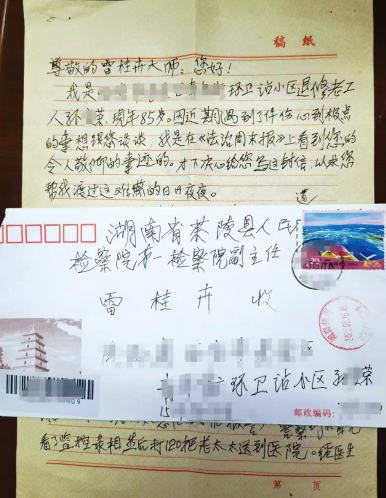 稿 纸
尊敬的雷桂卉大师：您好！
我是 环卫站小区退修老工
人环 荣 現年85岁。因近期遇到了件伤心到极点
的事想跟您谈谈，我是在《法治周末报》上看到您的
令人敬仰的事迹的。才下决心给您写这封信，以求您
帮我渡过这难熬的日日夜夜。
湖南省茶陵县人民
检察院第一检察院副主任
雷桂卉 收
环卫站小区 荣
15
邮政编码：
看了监控录相然后打120把老太太送到医院。经医生